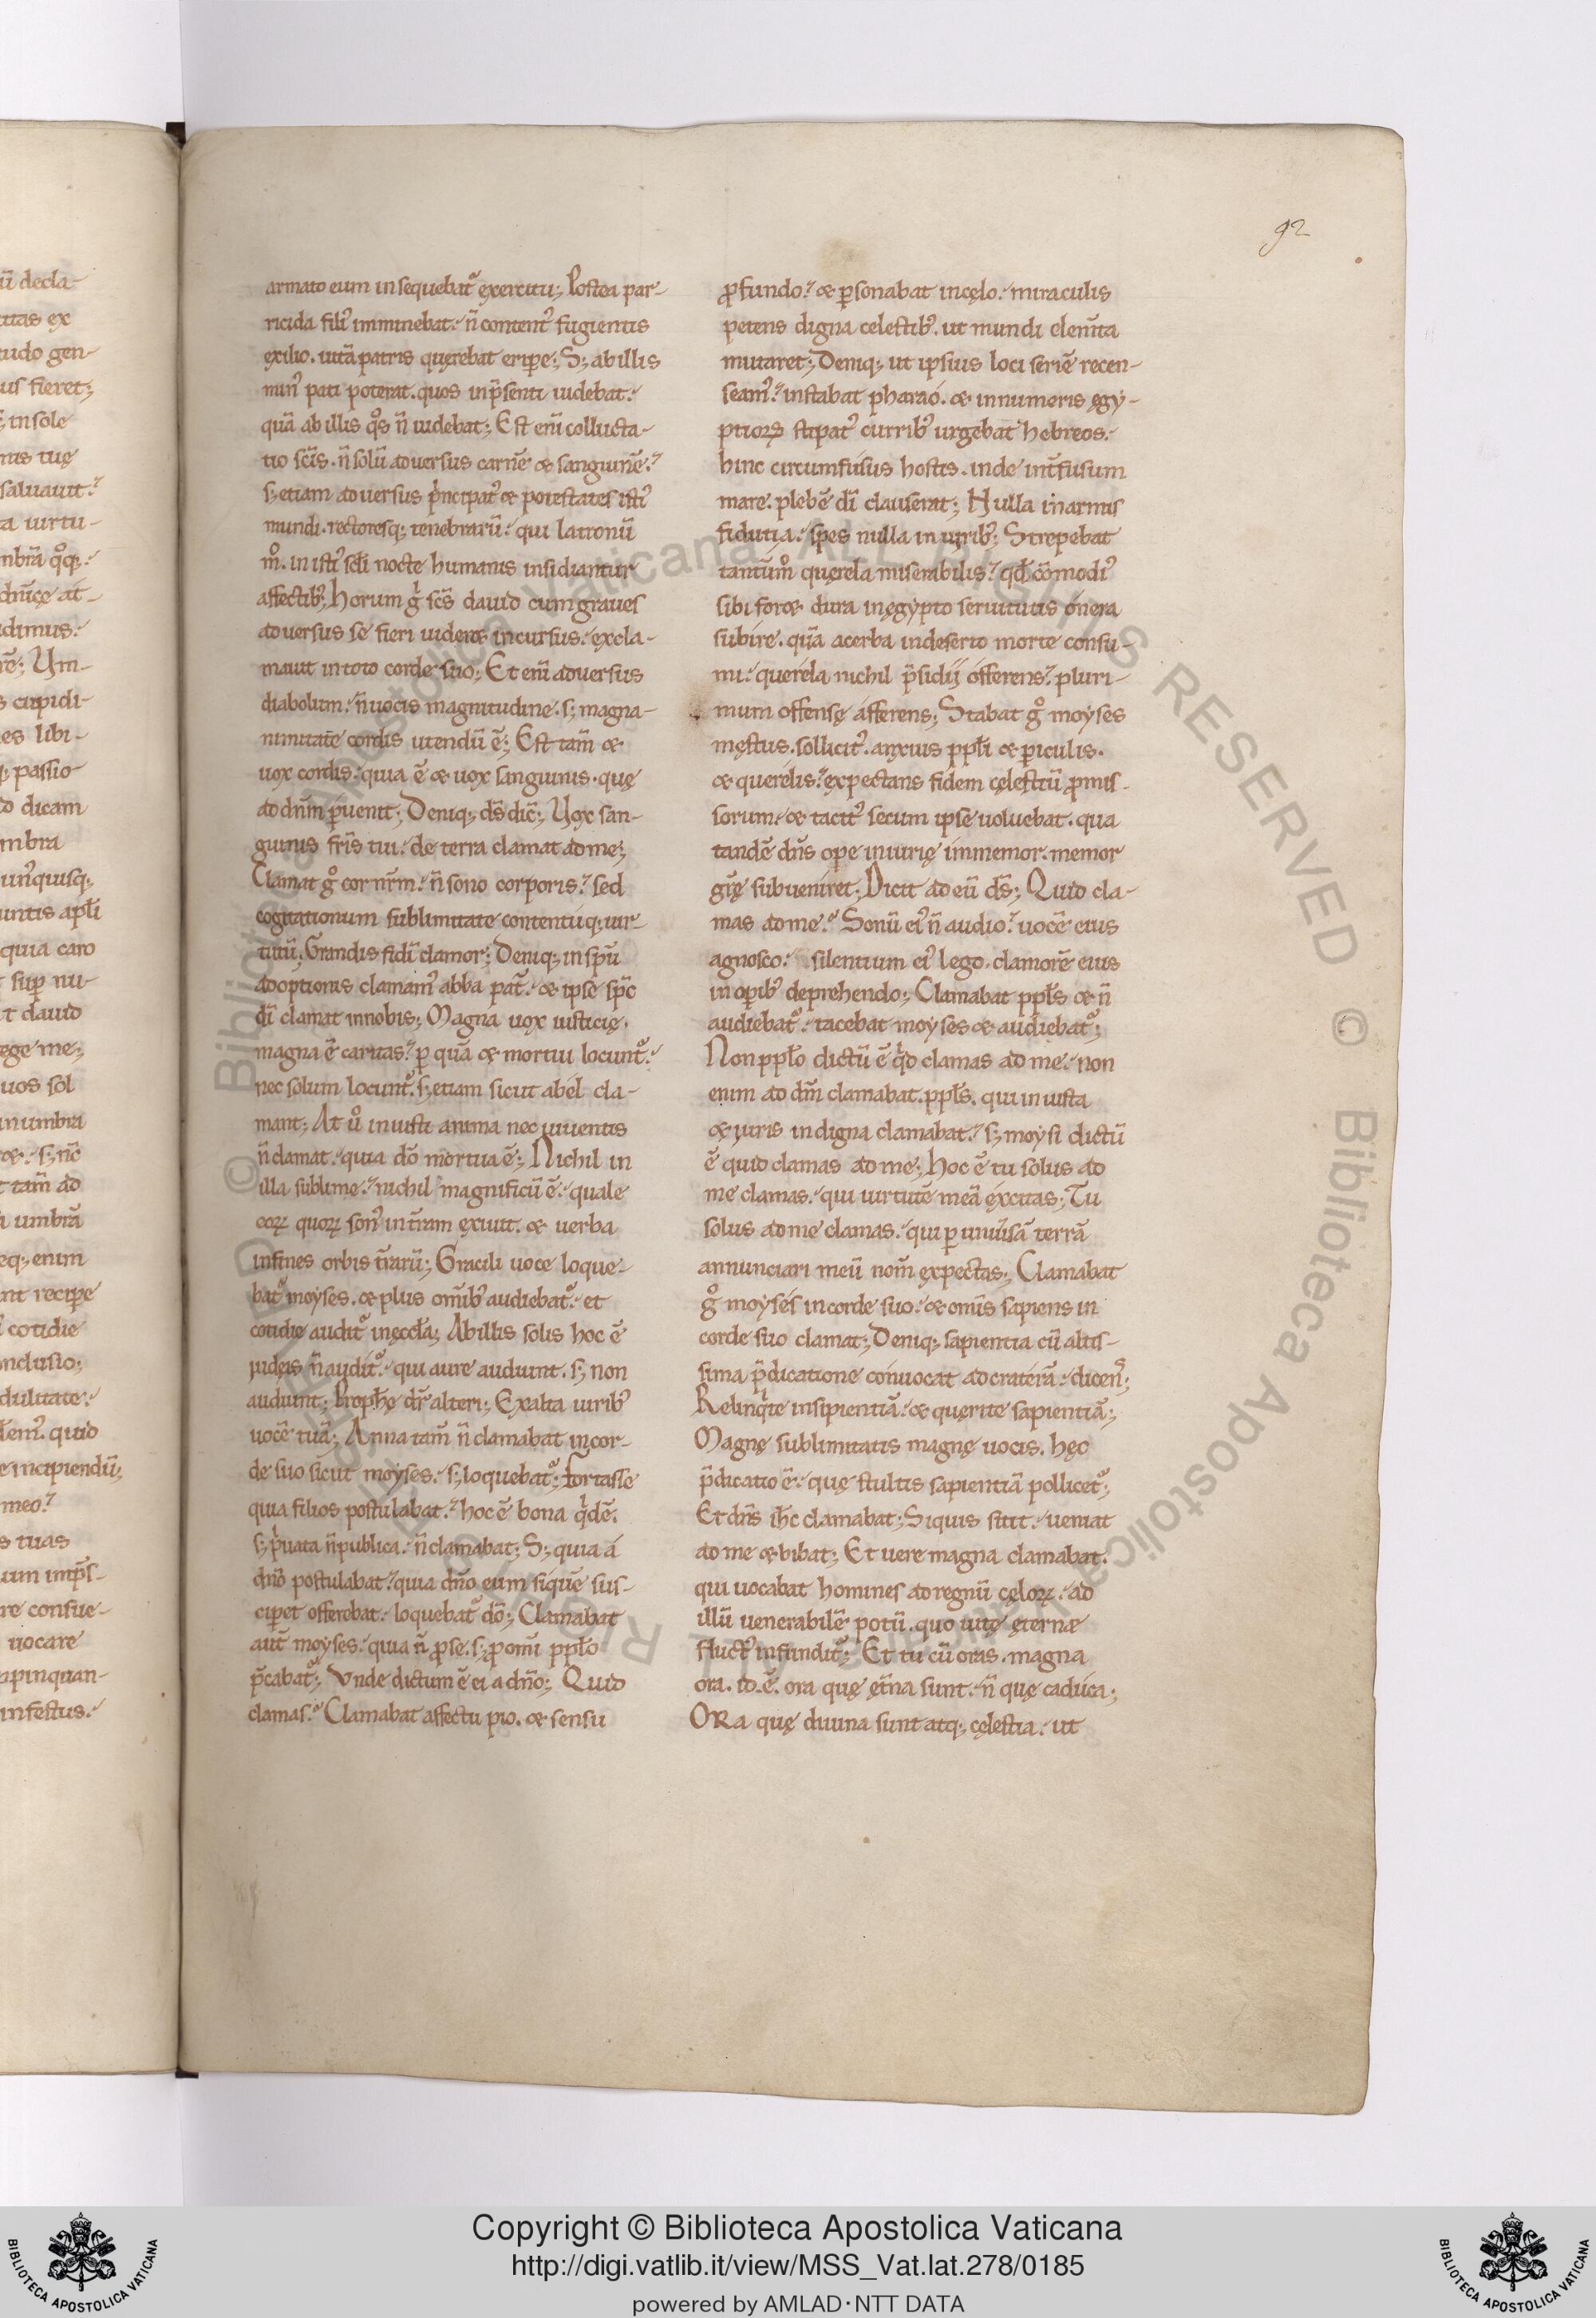 92
armato eum insequebat᷑ exercitu; Postea par-
ricida fili᷒ imminebat. n̄ content᷒ fugientis
exilio. uitā patris quęrebat eripe; S; ab illis
min᷒ pati poterat. quos inp̄senti uidebat.
quā ab illis q͛os n̄ uidebat; Est eni᷒ collucta-
tio sc̄is. n̄ solū aduersus carnē & sanguinē.
s; etiam aduersus p͛ncipat᷒ & potestates isti᷒
mundi. rectoresq; tenebrarū. qui latronū
m͛o. in isti᷒ sc̄li nocte humanis insidiantur
affectib᷒; Horum g͛ sc̄s dauid cum graues
aduersus se fieri uider& incursus. excla-
mauit in toto corde suo; Et eni᷒ aduersus
diabolum. n̄ uocis magnitudine. s; magna-
nimitate cordis utendū ē; Est tam̄ &
uox cordis. quia ē & uox sanguinis. quę
ad dn̄m p̱uenit; Deniq; ds̄ dic̄; Vox san-
guinis fr̄is tui. de terra clamat ad me;
Clamat g͛o cor nr̄m. n̄ sono corporis. sed
cogitationum sublimitate contentuq; uir-
tutū; Grandis fidi᷒ clamor; Deniq; in sp̄u
adoptionis clamam᷒ abba pat̄. & ipse sp̄c
dī clamat innobis; Magna uox iusticię.
magna ē caritas. p̱ quā & mortui locunt᷑.
nec solum locunt᷑. s; etiam sicut abel cla-
mant; At u͛o iniusti anima nec uiuentis
n̄ clamat. quia dō mortua ē; Nichil in
illa sublime. nichil magnificū ē. quale
eoꝝ quoꝝ son᷒ int̄ram exiuit. & uerba
infines orbis t̄rarū; Gracili uoce loque-
bat᷑ moyses. & plus omib᷒ audiebat᷑. et
cotidie audit᷑ inęccl̄a; Ab illis solis hoc ē
iudęis n̄ audit᷑. qui aure audiunt. s; non
audiunt; Proph̄ę dr̄ alteri; Exalta uirib᷒
uocē tuā; Anna tam̄ n̄ clamabat in cor-
de suo sicut moyses. s; loquebat᷑; Fortasse
quia filios postulabat. hoc ē bona q͛dē.
s; p͛uata n̄ publica. n̄ clamabat; S; quia a
dn̄o postulabat. quia dn̄o eum siquē sus-
cipet offerebat. loquebat᷑ dō; Clamabat
aut̄ moyses. quia n̄ ꝓ se. s; ꝓ omi᷒ ppl̄o
p̄cabat᷑; Vnde dictum ē ei a dn̄o; Quid
clamas. Clamabat affectu pio. & sensu
ꝓfundo. & p̱sonabat incęlo. miraculis
petens digna celestib᷒. ut mundi elem̄ta
mutaret; Deniq; ut ipsius loci seriē recen-
seam᷒. instabat pharao. & innumeris ęgy-
ptioꝝ stipat᷒ currib᷒ urgebat hebreos.
hinc circumfusus hostis. inde int̄fusum
mare. plebē dī clauserat; Nulla inarmis
fidutia. spes nulla in uirib᷒; Strepebat
tantūm͛o querela miserabilis. qd̄ cōmodi᷒
sibi for& dura inęgypto seruitutis onera
subire. quā acerba indeserto morte consu-
mi. querela nichil p̄sidij offerens. pluri-
mum offensę afferens; Stabat g͛o moyses
męstus. sollicit᷒. anxius ppl̄i & p̱iculis.
& querelis. expectans fidem cęlestiū ꝓmis-
sorum. & tacit᷒ secum ipse uoluebat. qua
tandē dn̄s ope iniurię immemor. memor
gr̄ę subueniret; Dicit ad eū ds̄; Quid cla-
mas ad me. Sonū ei᷒ n̄ audio. uocē eius
agnosco. silentium ei᷒ lego. clamorē eius
in opib᷒ deprehendo; Clamabat ppl̄s & n̄
audiebat᷑. tacebat moyses & audiebat᷑;
Non ppl̄o dictū ē q͛d clamas ad me. non
enim ad dm̄ clamabat. ppl̄s. qui iniusta
& iuris indigna clamabat. s; moysi dictū
ē quid clamas ad me; hoc ē tu solus ad
me clamas. qui uirtutē meā excitas; Tu
solus ad me clamas. qui p̱ uniu̅sā terrā
annunciari meū nom̄ expectas; Clamabat
g͛o moyses in corde suo. & omīs sapiens in
corde suo clamat; Deniq; sapientia cū altis-
sima p̄dicatione conuocat ad craterā. dicen᷒;
Relinq͛te insipientiā. & querite sapientiā;
Magnę sublimitatis magnę uocis. hęc
p̄dicatio ē. quę stultis sapientiā pollicet᷑;
Et dn̄s ih̄c clamabat; Siquis sitit. ueniat
ad me & bibat; Et uere magna clamabat.
qui uocabat homines ad regnū cęloꝝ. ad
illū uenerabilē potū. quo uitę ęternæ
fluct᷒ infundit᷑; Et tu cū oras. magna
ora. id. ē. ora quę et̄na sunt. n̄ quę caduca;
ORa quę diuina sunt atq; cęlestia. ut
Copyright © Biblioteca Apostolica Vaticana
http://digi.vatlib.it/view/MSS_Vat.lat.278/0185
powered by AMLAD·NTT DATA
BIBLIOTECA APOSTOLICA VATICANA
BIBLIOTECA APOSTOLICA VATICANA